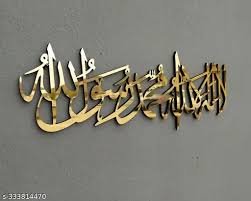 لا إله إلا الله محمد رسول الله
s-333814470